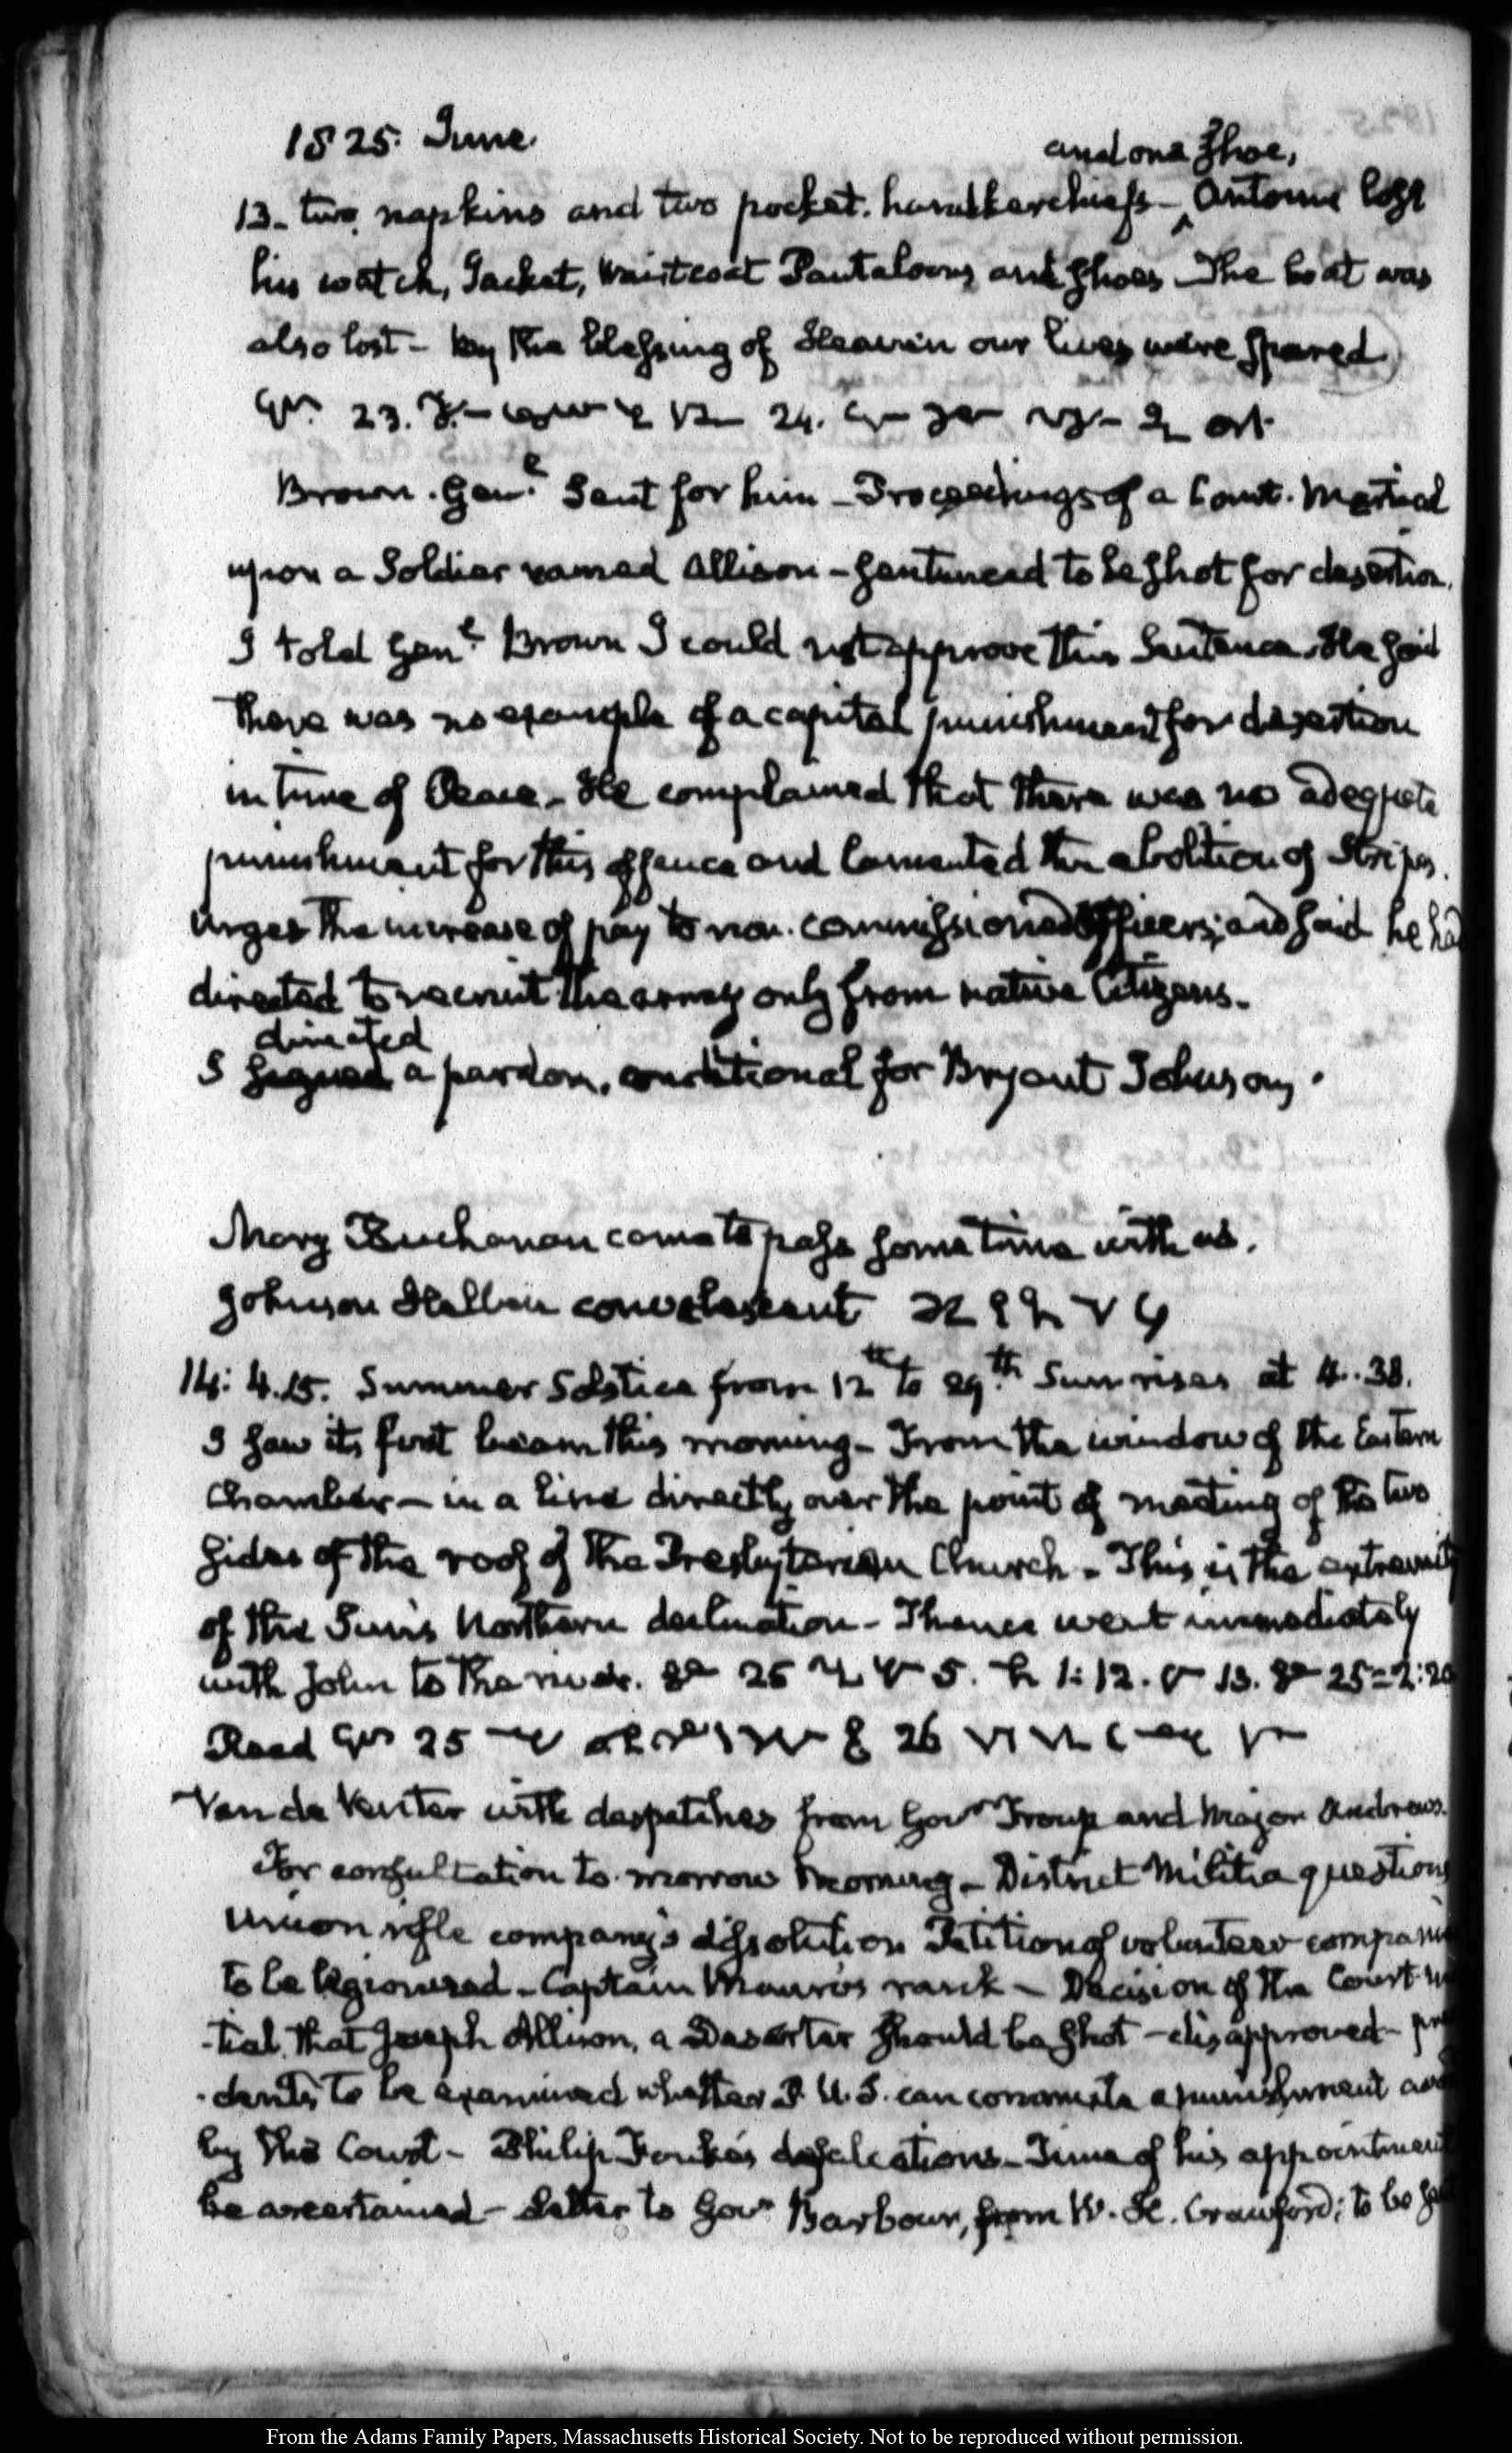 1825. June.
and one Shoe,
13. two napkins and two pocket-handkerchiefs — Antoine lost
his watch, Jacket, Waistcoat Pantaloons and Shoes — The boat was
also lost — by the blessing of Heaven our lives were spared
23. 24.
Brown. Genl. Sent for him — Proceedings of a Court-Martial
upon a Soldier named Allison — Sentenced to be shot for desertion.
I told Genl. Brown I could not approve this Sentence. He said
there was no example of a capital punishment for desertion
in time of Peace — He complained that there was no adequate
punishment for this offence and lamented the abolition of Stripes.
Urges the increase of pay to non-commissioned Officers; and said he had
directed to recruit the army only from native Citizens.
directed
I signed a pardon, conditional for Bryant Johnson.
Mary Buchanan came to pass some time with us.
Johnson Hellen convalescent
14: 4.15. Summer Solstice from 12th to 29th. Sun rises at 4..38.
I saw its first beam this morning — From the window of the Eastern
Chamber — in a line directly over the point of meeting of the two
Sides of the roof of the Presbyterian Church — This is the extremity
of the Sun's Northern declination — Thence went immediately
with John to the river. 25 5. 1:12. 13. 25 = 2:20
Read 25 26
Van de Venter with despatches from Govr Troup and Major Andrews.
For consultation to-morrow morning — District Militia questions
Union rifle company's dissolution Petition of volunteer
to be Captain Mauro's rank — Decision of the Court
-tial, that Joseph Allison, a Deserter should be shot — disapproved —
-dents to be examined whether P. U.S. can commute a punishment
by the Court — Philip Fouke's defalcations — Time of his appointment
be ascertained — Letter to Govr Barbour, from W. H. Crawford; to be
From the Adams Family Papers, Massachusetts Historical Society. Not to be reproduced without permission.